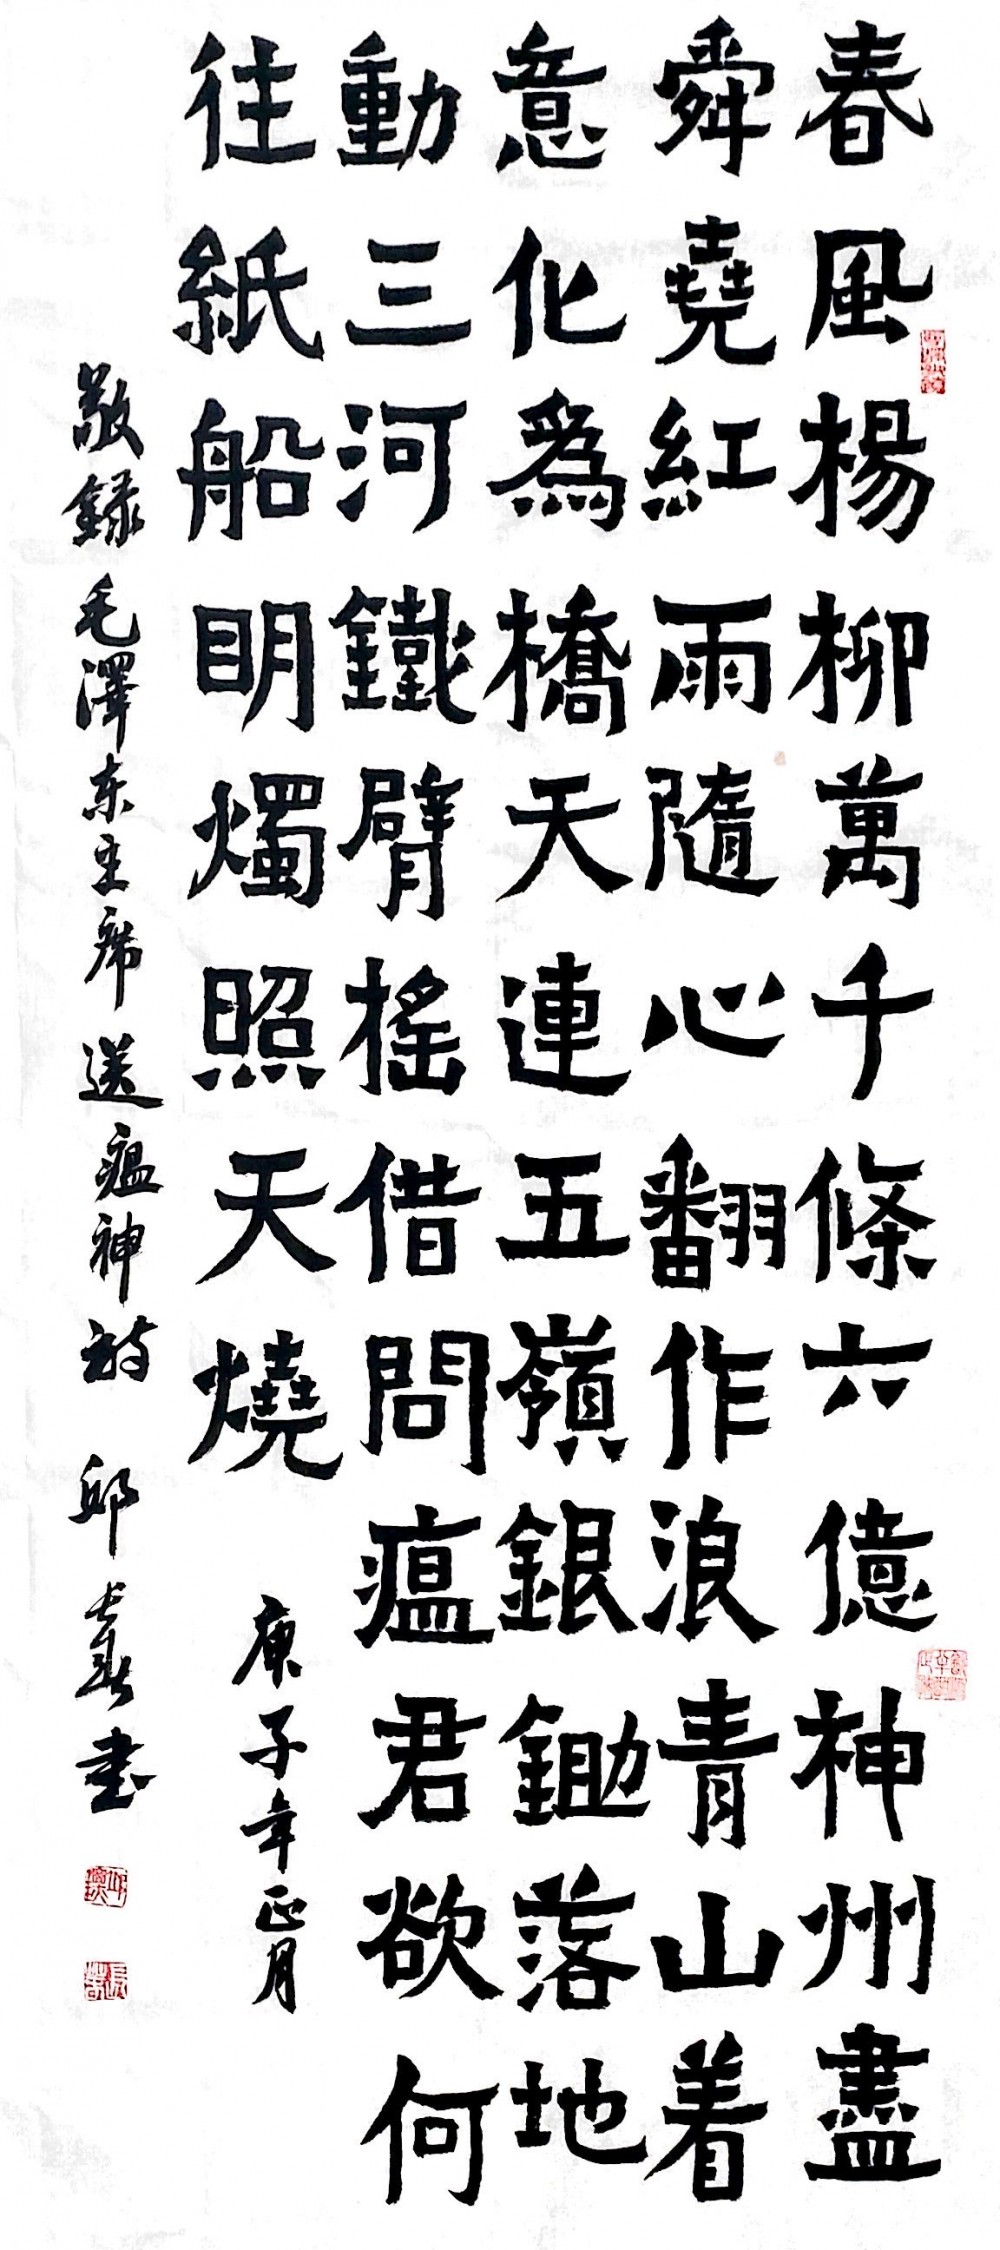 春風楊柳萬千條六億神州盡
舜堯紅雨隨心翻作浪青山着
意化為橋天連五嶺銀鋤落地
動三河鐵臂搖借問瘟君欲何
往紙船明燭照天燒
庚子年正月
敬録毛澤东主席送瘟神詩 邱長春書